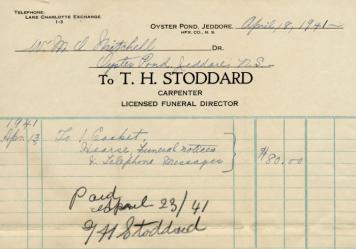 TELEPHONE:
LAKE CHARLOTTE EXCHANGE
1-3
OYSTER POND, JEDDORE, April 18, 1941
HFX. CO., N. S.
Mr M. A. Mitchell DR.
Oyster Pond Jeddore, N.S.
TO T. H. STODDARD
CARPENTER
LICENSED FUNERAL DIRECTOR
1941
Apr. 13 To 1 Casket,
Hearse, Funeral notices
& Telephone Messages $80.00
Paid
April 23/41
T H Stoddard